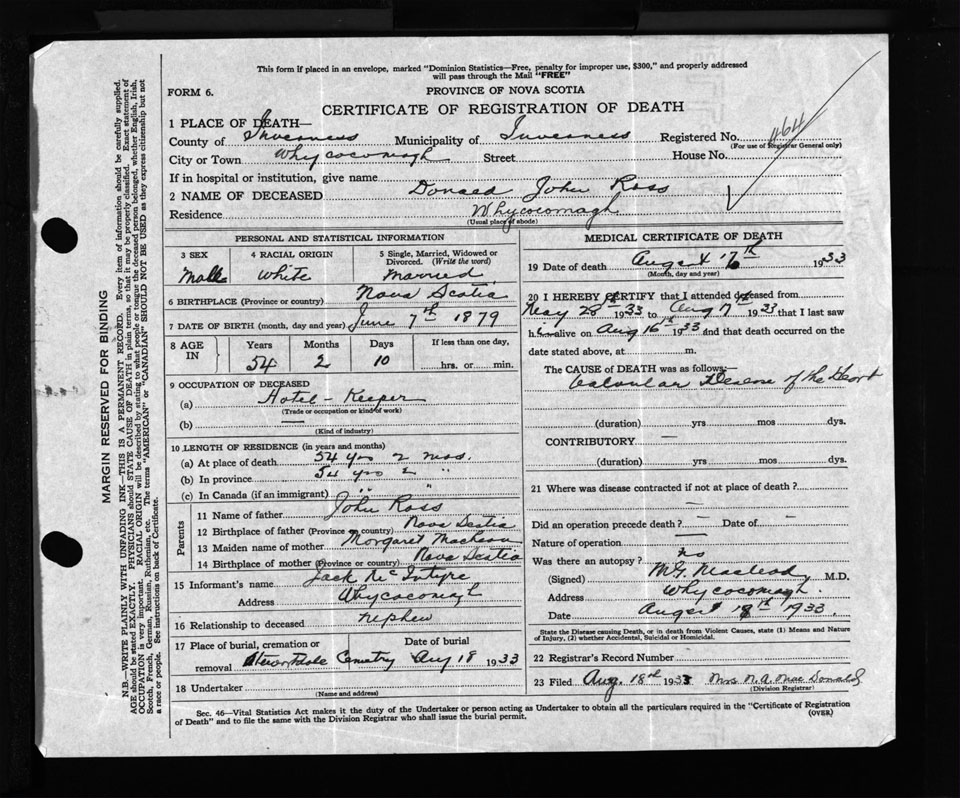 This form if placed in an envelope, marked "Dominion Statistics—Free, penalty for improper use, $300," and properly addressed
will pass through the Mail "FREE"
FORM 6.
PROVINCE OF NOVA SCOTIA
CERTIFICATE OF REGISTRATION OF DEATH
1 PLACE OF DEATH—
County of Inverness Municipality of Inverness Registered No. 464
(For use of Registrar General only)
City or Town Whycocomagh Street House No.
If in hospital or institution, give name
2 NAME OF DECEASED Donald John Ross
Residence Whycocomagh
(Usual place of abode)
PERSONAL AND STATISTICAL INFORMATION
3 SEX 4 RACIAL ORIGIN 5 Single, Married, Widowed or
Divorced. (Write the word)
Male White Married
6 BIRTHPLACE (Province or country) Nova Scotia
7 DATE OF BIRTH (month, day and year) June 7th 1879
8 AGE IN Years Months Days If less than one day,
54 2 10 hrs. or min.
9 OCCUPATION OF DECEASED
(a) Hotel-Keeper
(Trade or occupation or kind of work)
(b) —
(Kind of industry)
10 LENGTH OF RESIDENCE (in years and months)
(a) At place of death 54 yrs 2 mos.
(b) In province 54 yrs 2 "
(c) In Canada (if an immigrant) " "
Parents
11 Name of father John Ross
12 Birthplace of father (Province or country) Nova Scotia
13 Maiden name of mother Margaret
14 Birthplace of mother (Province or country) Nova Scotia
15 Informant's name Jack McIntyre
Address Whycocomagh
16 Relationship to deceased nephew
17 Place of burial, cremation or Date of burial
removal Stewartdale Cemetry Aug 18 1933
18 Undertaker
(Name and address)
MEDICAL CERTIFICATE OF DEATH
19 Date of death August 17th 1933
(Month, day and year)
20 I HEREBY CERTIFY that I attended deceased from
May 28th 1933 to Aug 17th 1933 that I last saw
him alive on Aug 16th 1933 and that death occurred on the
date stated above, at m.
The CAUSE of DEATH was as follows:—
Valvular Disease of the Heart
(duration) yrs mos dys.
CONTRIBUTORY —
(duration) yrs mos dys.
21 Where was disease contracted if not at place of death?
—
Did an operation precede death? — Date of —
Nature of operation —
Was there an autopsy? no
(Signed) M.G. Macleod M.D.
Address Whycocomagh.
Date August 18th 1933.
State the Disease causing Death, or in death from Violent Causes, state (1) Means and Nature
of Injury, (2) whether Accidental, Suicidal or Homicidal.
22 Registrar's Record Number
23 Filed Aug. 18th 1933 Mrs M.A. MacDonald
(Division Registrar)
Sec. 46—Vital Statistics Act makes it the duty of the Undertaker or person acting as Undertaker to obtain all the particulars required in the "Certificate of Registration
of Death" and to file the same with the Division Registrar who shall issue the burial permit.
(OVER)
MARGIN RESERVED FOR BINDING
N.B.—WRITE PLAINLY WITH UNFADING INK—THIS IS A PERMANENT RECORD. Every item of information should be carefully supplied.
AGE should be stated EXACTLY. PHYSICIANS should STATE CAUSE OF DEATH in plain terms, so that it may be properly classified. Exact statement of
OCCUPATION is very important. RACIAL ORIGIN will be described by stating to what people or tongue the deceased person belonged, whether English, Irish,
Scotch, French, German, Russian, Ruthenian, etc. The terms "AMERICAN" or "CANADIAN" SHOULD NOT BE USED as they express citizenship but not
a race or people. See instructions on back of Certificate.